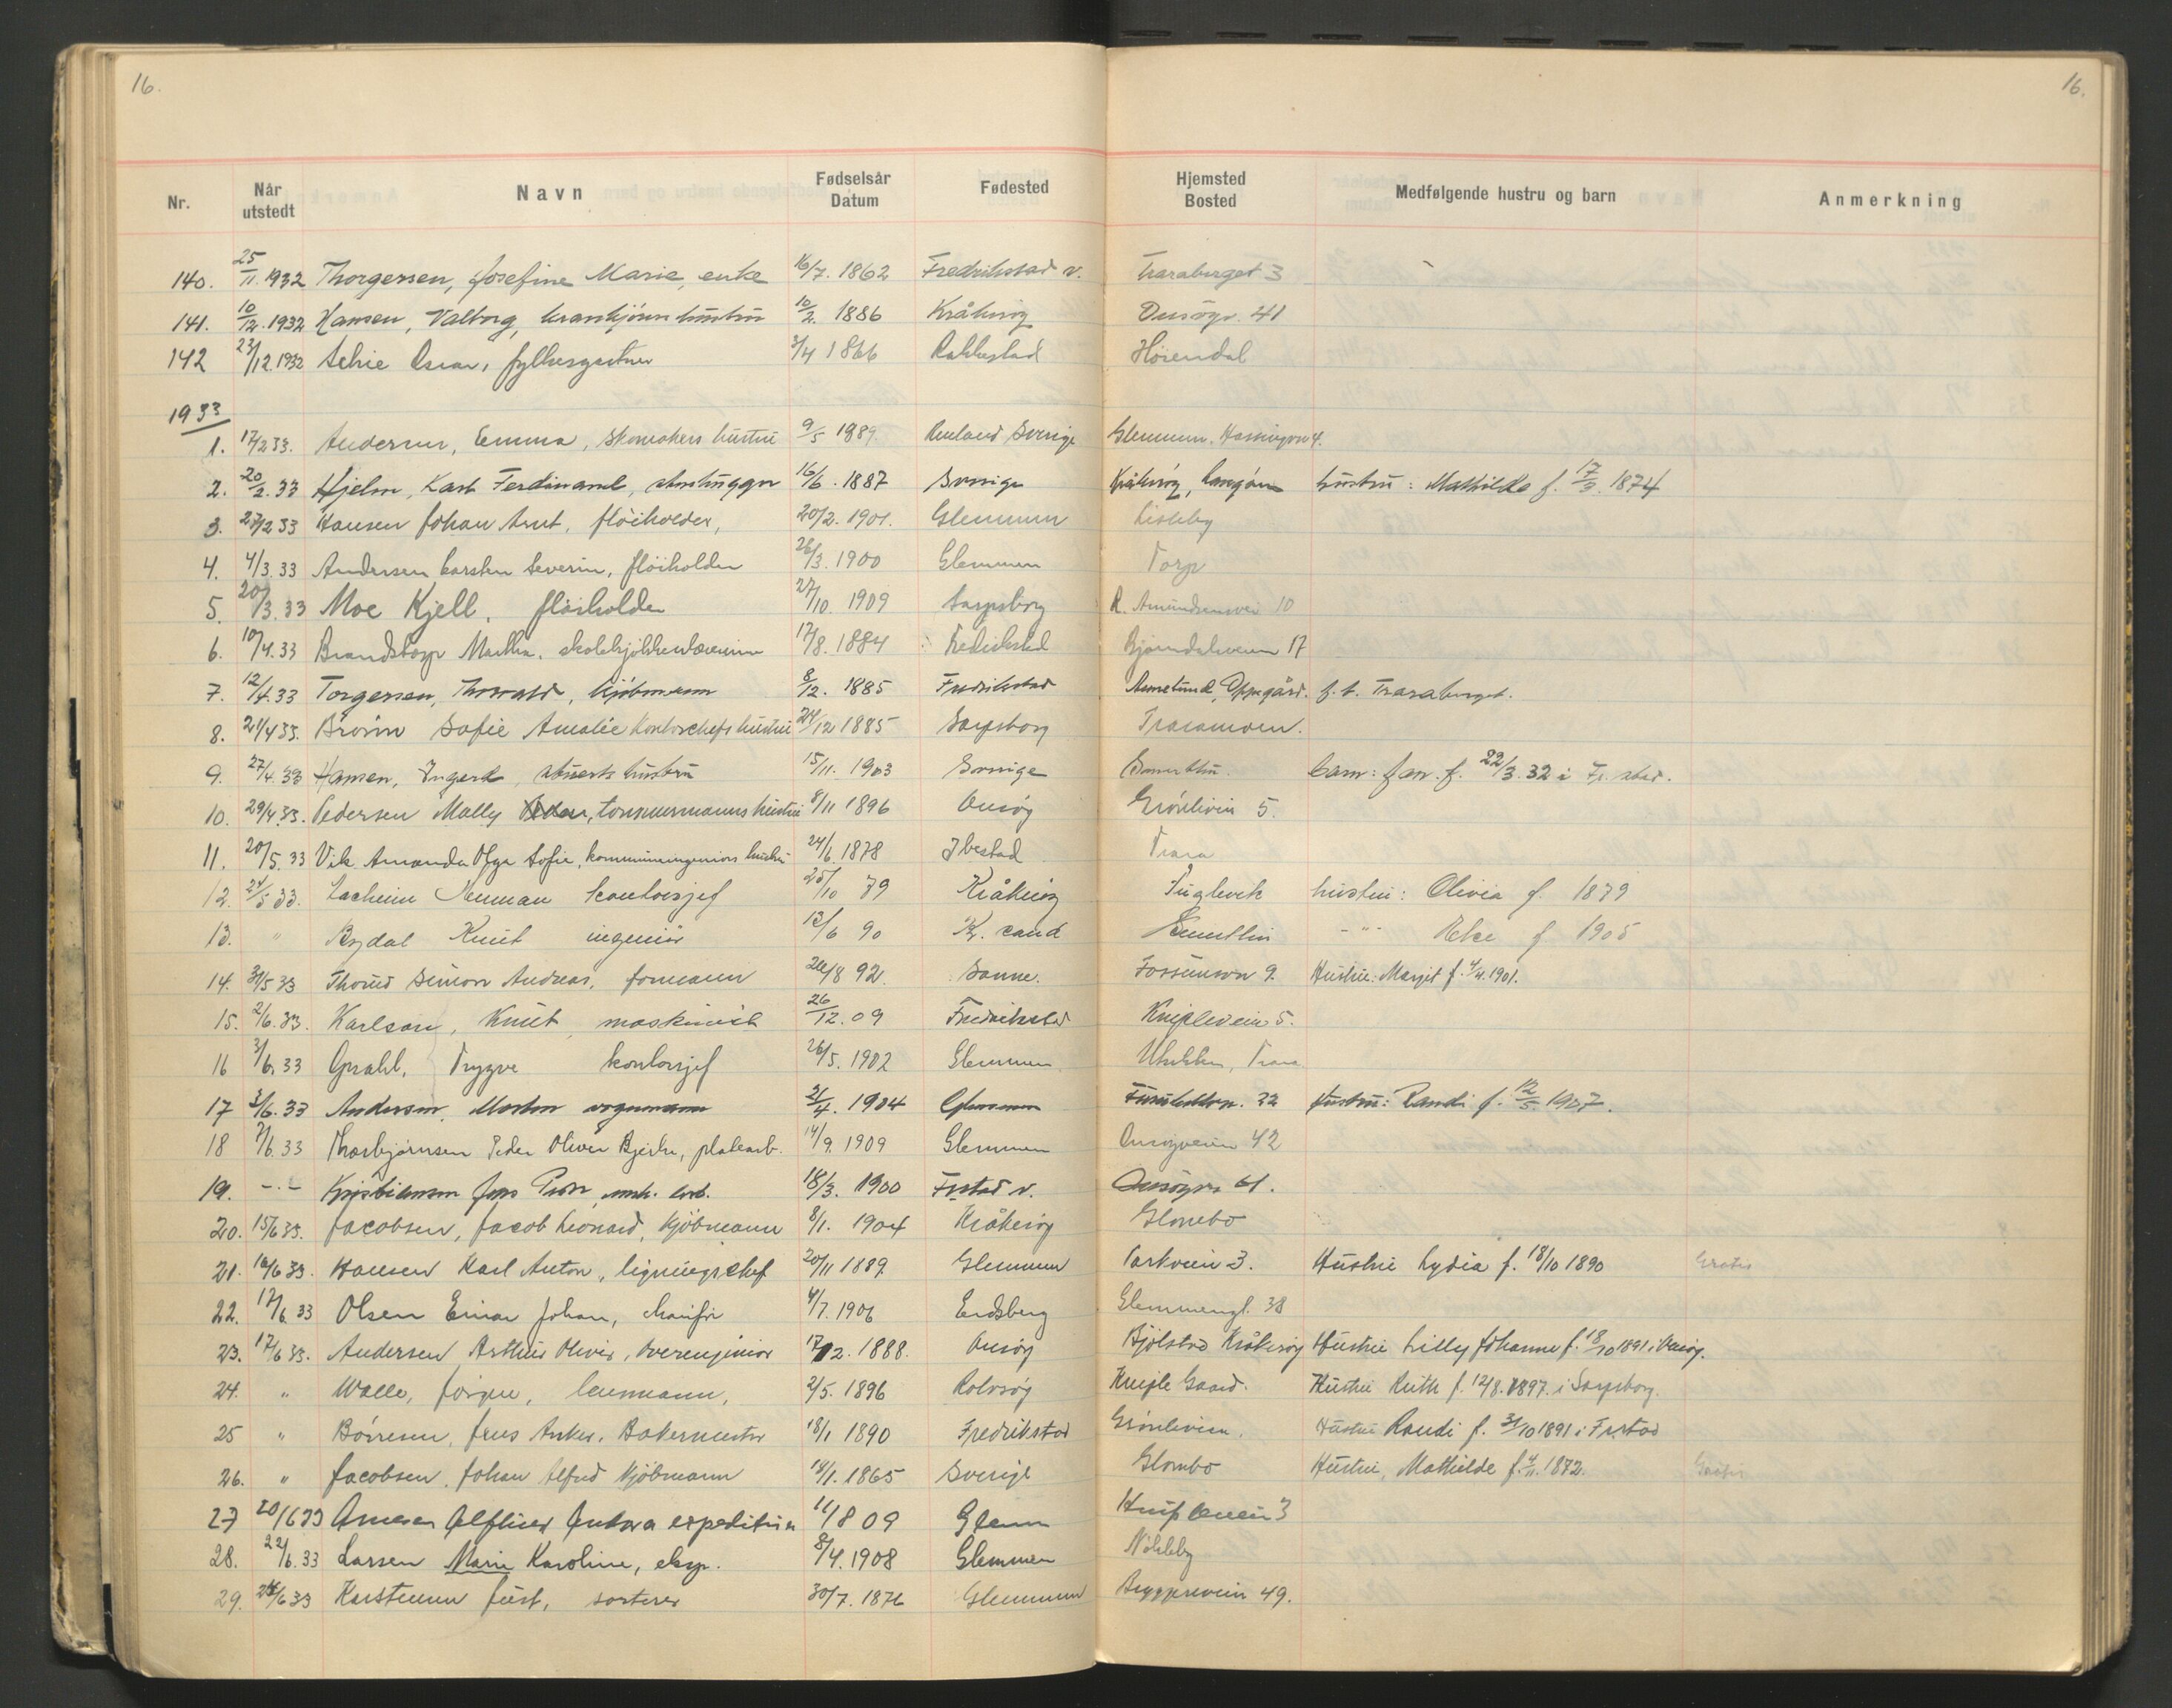 16.
16.
Nr. Når utstedt Navn Fødselsår Datum Fødested Hjemsted Bosted Medfølgende hustru og barn Anmerkning
140. 25/11.1932 Thorgersen, Josefine Marie, enke 16/7. 1862 Fredrikstad v. Traraberget 3
141. 10/12.1932 Hansen, Valborg, hustru 10/2. 1886 Kråkerøy Onsøyv. 41
142 23/12.1932 Oscar, fylkesgartner 3/4 1866 Rakkestad
1933
1. 17/2 33. Andersen, Emma, skomakers hustru 9/5 1889. Sverige Glemmen. 4.
2. 20/2. 33 Hjelm, Karl Ferdinand, stenhugger 16/6. 1887 Sverige Kråkerøy, hustru: Mathilde f. 17/9. 1874
3. 27/2 33 Hansen Johan Arnt, fløiholder, 20/2. 1901. Glemmen Lisleby
4. 4/3. 33 Andersen Carsten Severin, fløiholder 26/3. 1900 Glemmen Torp
5. 20/3. 33 Moe Kjell, fløiholder 27/10. 1909 Sarpsborg R. Amundsensvei 10
6. 10/4. 33 Brandstorp Martha. skolekjøkkenlærerinne 17/8. 1884 Fredrikstad Bjørndalsveien 17
7. 12/4. 33 Torgersen, Thorvald, kjøbmann 8/12. 1885 Fredrikstad Oppegård. f. t. Traraberget.
8. 21/4 33. Sofie Amalie kontorchefs hustru 24/12 1885 Sarpsborg Traramoen.
9. 27/4. 33 Hansen, Ingerd, stuerts hustru 15/11. 1903 Sverige barn: Jan. f. 22/3. 32 i Fr. stad.
10. 29/4. 33. Pedersen Molly hustru 8/11 1896 Onsøy Grønliveien 5.
11. 20/5. 33 Vik Amanda Olga Sofie, kommuneingeniørs hustru 24/6. 1878 Ibestad Trara
12. 24/5 33. Herman kontorsjef 25/10 79 Kråkerøy Fuglevik hustru: Olivia f. 1879
13. " Knut ingeniør 13/6 90 Kr. sand - " - Else f 1905
14. 31/5 33 Simon Andreas, formann 26/8 92. Sanne. 9. Hustru: Margit f. 4/4. 1901.
15. 2/6. 33. Karlsen, Knut, maskinist 26/12. 09 Fredrikstad Knipleveien 5.
16 3/6. 33 Trygve kontorsjef 26/5. 1902 Glemmen Trara.
17 3/6. 33 Andersen, Morten vognmann 2/4. 1904 Glemmen 22 Hustru: Randi f. 12/5. 1907.
18 7/6. 33 Thorbjørnsen Peder Oliver Bjerke, platearb. 14/9. 1909 Glemmen Onsøyveien 42
19. - " - Kristiansen Jens 18/3. 1900 Fr.stad v. Onsøyvn 61.
20. 15/6 33. Jacobsen, Jacob Leonard, kjøbmann 8/1. 1904 Kråkerøy Glombo
21. 16/6 33. Hansen Karl Anton, ligningschef 20/11 1889. Glemmen Parkveien 3. Hustru Lydia f. 18/10 1890 Gratis
22. 17/6. 33 Olsen Einar Johan, chauffør 4/7. 1906 Eidsberg Glemmengt. 38
23. 17/6 33. Andersen Arthur Oliver, overingeniør 17/12. 1888. Onsøy Bjølstad Kråkerøy Hustru Lilly Johanne f. 18/10 1891 i Onsøy.
24. " Walle, Jørgen, lensmann, 2/5. 1896 Rolvsøy Kniple Gaard. Hustru Ruth f. 12/8. 1897. i Sarpsborg.
25 " Børresen, Jens Anker. Bakermester 18/1 1890 Fredrikstad Grønliveien. Hustru Randi f. 31/10 1891 i Fr.stad
26. " Jacobsen, Johan Alfred Kjøbmann 14/1. 1865 Sverige Glombo Hustru, Mathilde f. 4/11. 1872. Gratis
27 20/6 33 Arnesen Antora expeditrise 11/8 09 Glemm Knipleveien 3
28. 22/6. 33 Larsen Marie Karoline, eksp. 8/4. 1908 Glemmen Nøkleby
29. 24/6 33 Just, sorterer 30/7. 1876 Glemmen Bryggeriveien 49.